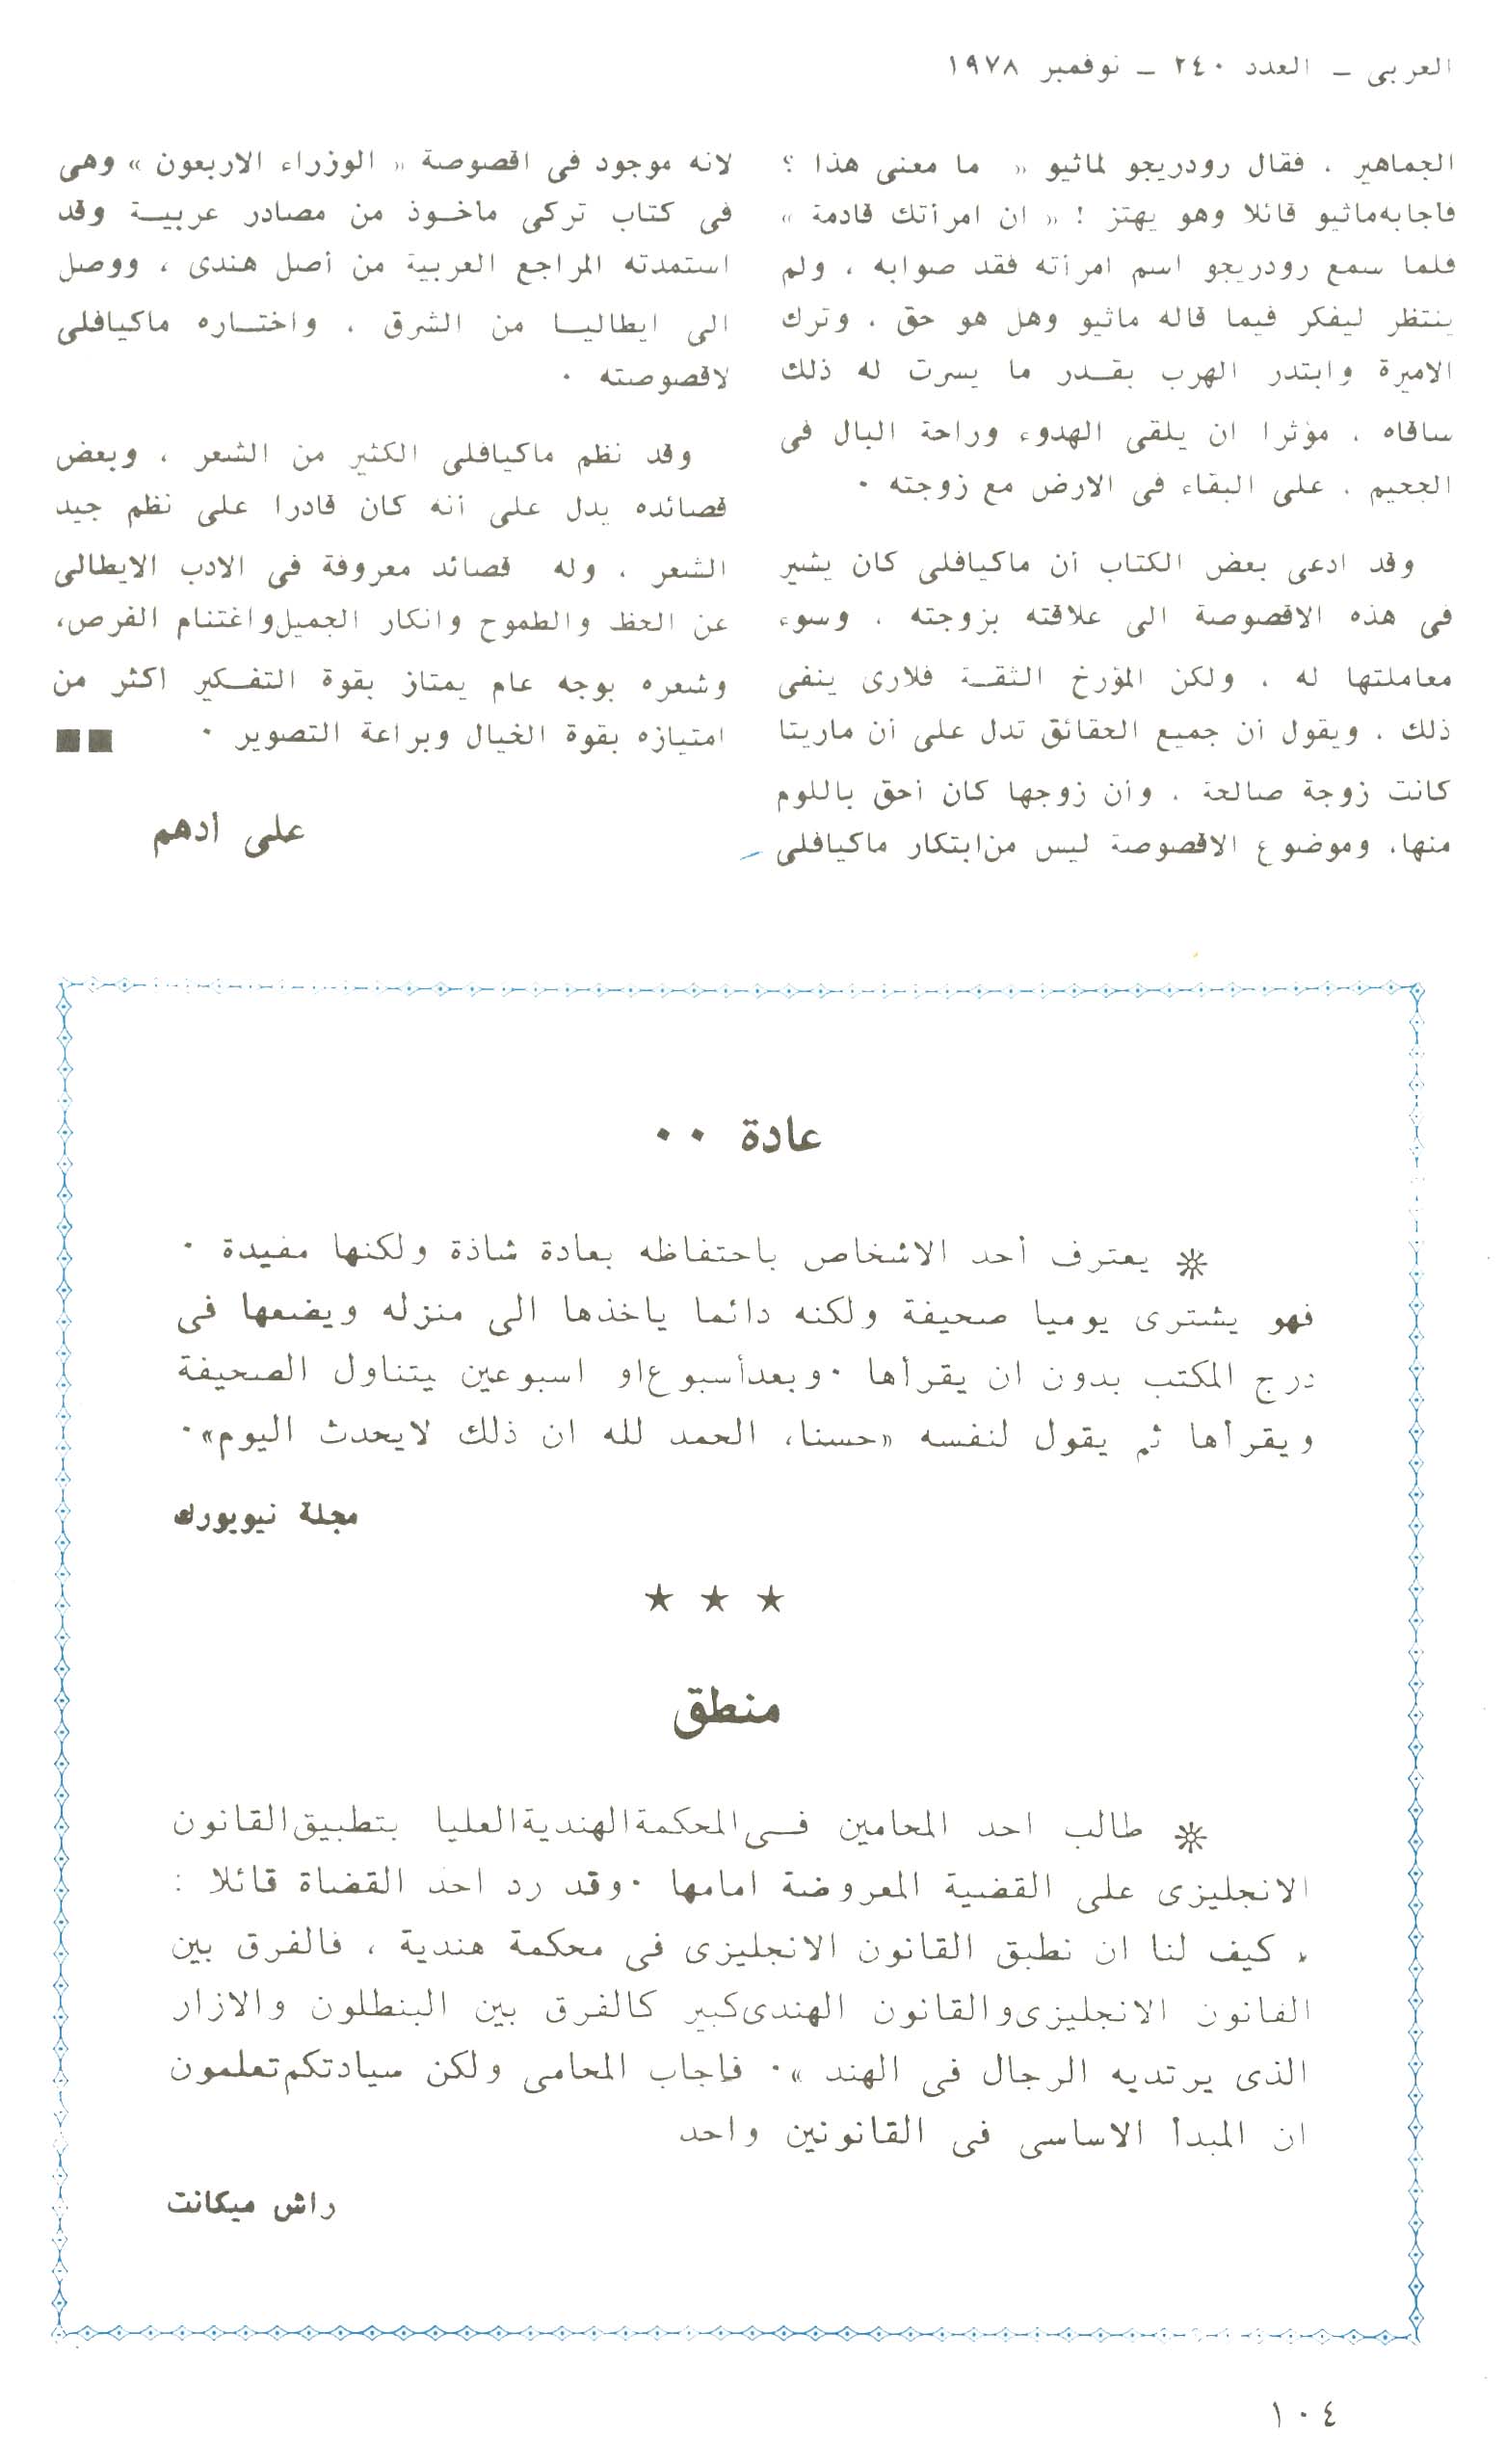 العربى – العدد ٢٤٠ – نوفمبر ١٩٧٨
الجماهير ، فقال رودريجو لماثيو « ما معنى هذا ؟
فاجابه ماثيو قائلا وهو يهتز ! « ان امرأتك قادمة »
فلما سمع رودريجو اسم امرأته فقد صوابه ، ولم
ينتظر ليفكر فيما قاله ماثيو وهل هو حق ، وترك
الاميرة وابتدر الهرب بقدر ما يسرت له ذلك
ساقاه ، مؤثرا ان يلقى الهدوء وراحة البال فى
الجحيم ، على البقاء فى الارض مع زوجته ٠
وقد ادعى بعض الكتاب أن ماكيافلى كان يشير
فى هذه الاقصوصة الى علاقته بزوجته ، وسوء
معاملتها له ، ولكن المؤرخ الثقة فلارى ينفى
ذلك ، ويقول أن جميع الحقائق تدل على أن ماريتا
كانت زوجة صالحة ، وأن زوجها كان أحق باللوم
منها، وموضوع الاقصوصة ليس من ابتكار ماكيافلى
لانه موجود فى اقصوصة « الوزراء الاربعون » وهى
فى كتاب تركى ماخوذ من مصادر عربية وقد
استمدته المراجع العربية من أصل هندى ، ووصل
الى ايطاليا من الشرق ، واختاره ماكيافلى
لاقصوصته ٠
وقد نظم ماكيافلى الكثير من الشعر ، وبعض
قصائده يدل على أنه كان قادرا على نظم جيد
الشعر ، وله قصائد معروفة فى الادب الايطالى
عن الحظ والطموح وانكار الجميل واغتنام الفرص،
وشعره بوجه عام يمتاز بقوة التفكير اكثر من
امتيازه بقوة الخيال وبراعة التصوير ٠
على أدهم
عادة ٠٠
يعترف أحد الاشخاص باحتفاظه بعادة شاذة ولكنها مفيدة ٠
فهو يشترى يوميا صحيفة ولكنه دائما ياخذها الى منزله ويضعها فى
درج المكتب بدون ان يقرأها ٠ وبعد أسبوع او اسبوعين يتناول الصحيفة
ويقرأها ثم يقول لنفسه «حسنا، الحمد لله ان ذلك لايحدث اليوم»٠
مجلة نيويورك
★ ★ ★
منطق
طالب احد المحامين فى المحكمة الهندية العليا بتطبيق القانون
الانجليزى على القضية المعروضة امامها ٠ وقد رد احد القضاة قائلا :
، كيف لنا ان نطبق القانون الانجليزى فى محكمة هندية ، فالفرق بين
القانون الانجليزى والقانون الهندى كبير كالفرق بين البنطلون والازار
الذى يرتديه الرجال فى الهند »٠ فاجاب المحامى ولكن سيادتكم تعلمون
ان المبدأ الاساسى فى القانونين واحد
راش ميكانت
١٠٤